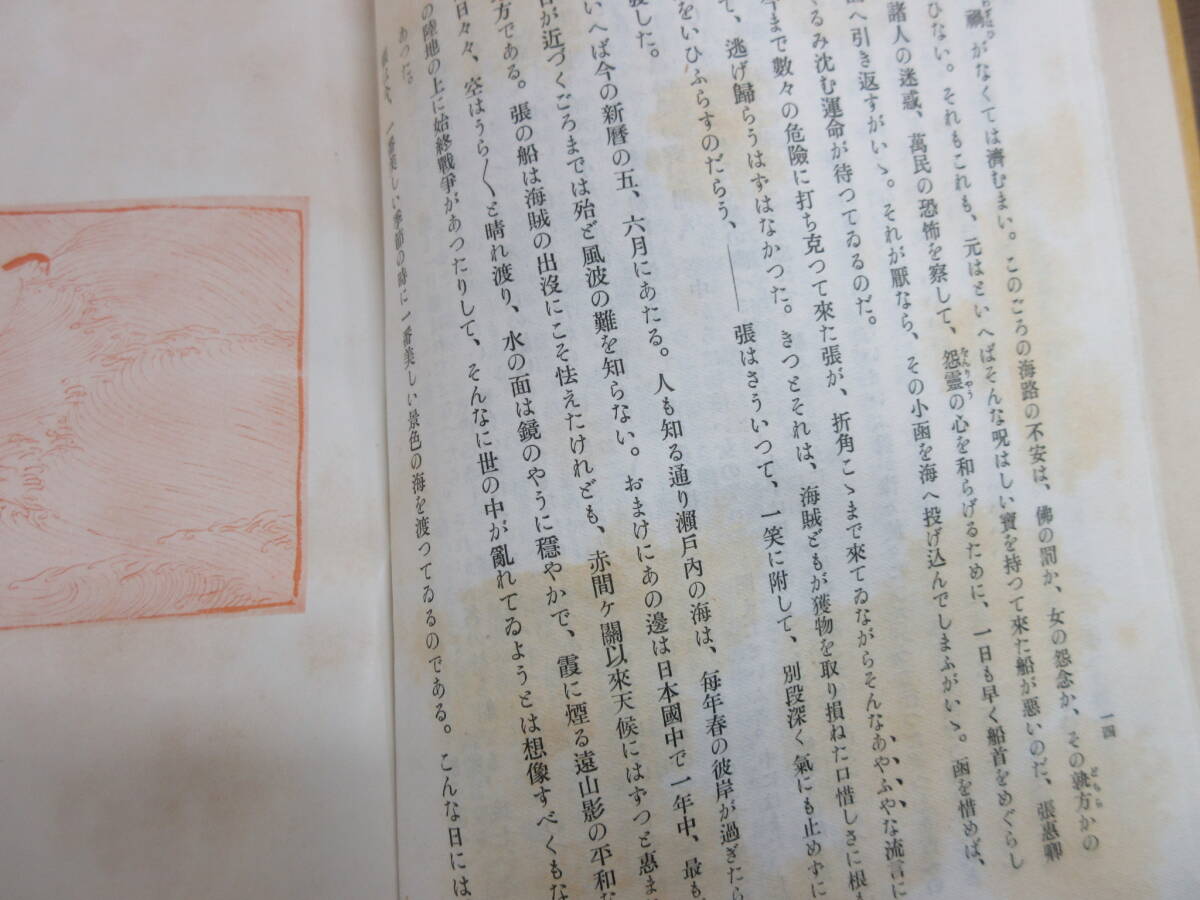 一四
禍がなくては濟むまい。このごろの海路の不安は、佛の罰か、女の怨念か、その孰方かの
どちら
ひない。それもこれも、元はといへばそんな呪はしい寶を持つて來た船が惡いのだ、張惠卿
諸人の迷惑、萬民の恐怖を察して、怨靈の心を和らげるために、一日も早く船首をめぐらし
をんりやう
へ引き返すがいゝ。それが厭なら、その小函を海へ投げ込んでしまふがいゝ。函を惜めば、
るみ沈む運命が待つてゐるのだ。
まで數々の危險に打ち克つて來た張が、折角こゝまで來てゐながらそんなあやふやな流言に
て、逃げ歸らうはずはなかつた。きつとそれは、海賊どもが獲物を取り損ねた口惜しさに根も
をいひふらすのだらう、――張はさういつて、一笑に附して、別段深く氣にも止めずに
した。
いへば今の新曆の五、六月にあたる。人も知る通り瀨戸內の海は、每年春の彼岸が過ぎたら
が近づくごろまでは殆ど風波の難を知らない。おまけにあの邊は日本國中で一年中、最も
方である。張の船は海賊の出沒にこそ怯えたけれども、赤間ヶ關以來天候にはずつと惠ま
日々々、空はうら〳〵と晴れ渡り、水の面は鏡のやうに穩やかで、霞に煙る遠山影の平和な
の陸地の上に始終戰爭があつたりして、そんなに世の中が亂れてゐようとは想像すべくもな
あつた。
一番美しい季節の時に一番美しい景色の海を渡つてゐるのである。こんな日には